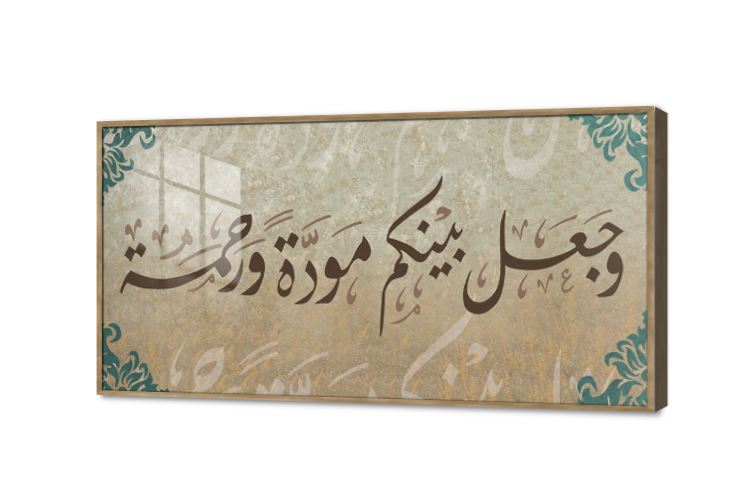 وَجَعَلَ بَيْنَكُم مَوَدَّةً وَرَحْمَةً